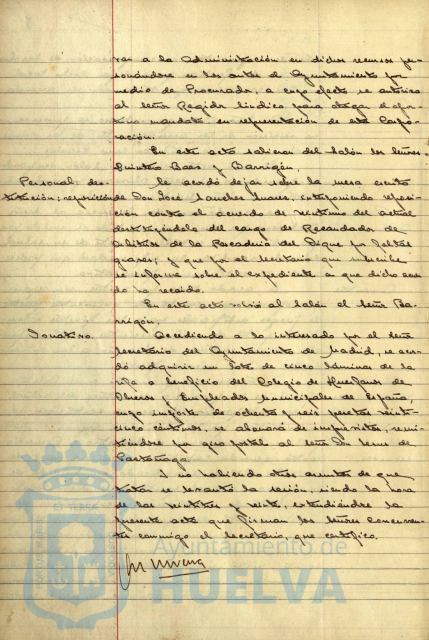 rar a la Administración en dichos recursos per-
sonándose en los autos el Ayuntamiento por
medio de Procurador, a cuyo efecto se autoriza
al señor Regidor Síndico para otorgar el opor-
tuno mandato en representación de esta Corpo-
ración.
En este acto salieron del salón los señores
Quintero Baez y Barrigón.
Personal: des-
titución; reposición
Se acordó dejar sobre la mesa escrito
de Don José Sanchez Suarez, interponiendo reposi-
ción contra el acuerdo de veintiuno del actual
destituyéndole del cargo de Recaudador de
Arbitrios de la Pescadería del Dique por faltas
graves; y que por el Secretario que suscribe
se informe sobre el expediente a que dicho acuer-
do ha recaído.
En este acto volvió al salón el señor Ba-
rrigón.
Donativo.
Accediendo a lo interesado por el señor
Secretario del Ayuntamiento de Madrid, se acor-
dó adquirir un lote de cinco láminas de la
rifa a beneficio del Colegio de Huérfanos de
Obreros y Empleados Municipales de España,
cuyo importe de ochenta y seis pesetas veinti-
cinco céntimos, se abonará de imprevistos, remi-
tiéndose por giro postal al señor Don
Castañaga.
Y no habiendo otros asuntos de que
tratar se levantó la sesión, siendo la hora
de las veintitres y veinte, extendiéndose la
presente acta que firman los señores concurren-
tes conmigo el Secretario, que certifico.
Ayuntamiento de
HUELVA